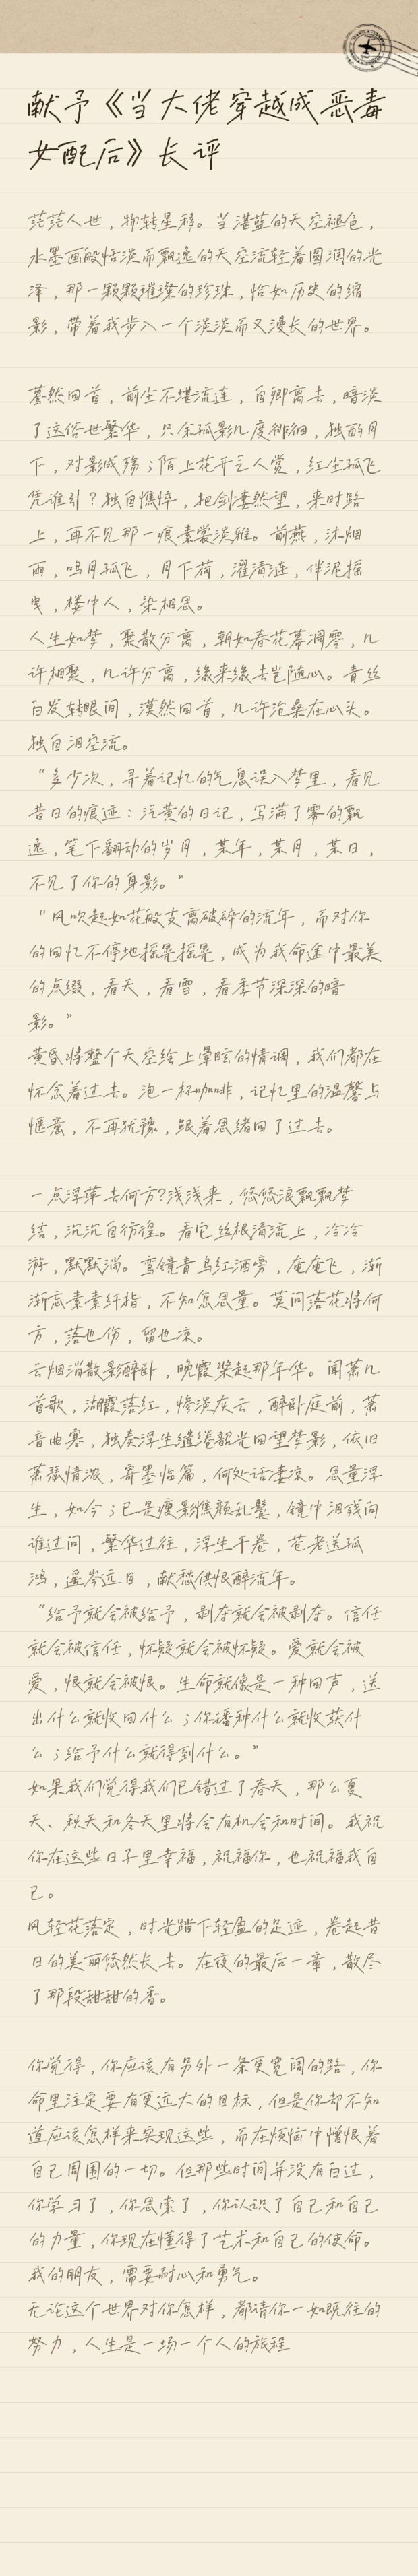 献予《当大佬穿越成恶毒
女配后》长评
茫茫人世，物转星移。当湛蓝的天空褪色，
水墨画般恬淡而飘逸的天空流轻着圆润的光
泽，那一颗颗璀璨的珍珠，恰如历史的缩
影，带着我步入一个淡淡而又漫长的世界。
蓦然回首，前尘不堪流连，自卿离去，暗淡
了这俗世繁华，只余孤影几度徘徊，独酌月
下，对影成殇；陌上花开乏人赏，红尘孤飞
凭谁引？独自憔悴，把剑凄然望，来时路
上，再不见那一痕素裳淡雅。前燕，沐烟
雨，呜月孤飞，月下荷，濯清涟，伴泥摇
曳，楼中人，染相思。
人生如梦，聚散分离，朝如春花暮凋零，几
许相聚，几许分离，缘来缘去岂随心。青丝
白发转眼间，漠然回首，几许沧桑在心头。
独自泪空流。
“多少次，寻着记忆的气息误入梦里，看见
昔日的痕迹：泛黄的日记，写满了零的飘
逸，笔下翻动的岁月，某年，某月，某日，
不见了你的身影。”
“风吹起如花般支离破碎的流年，而对你
的回忆不停地摇晃摇晃，成为我命途中最美
的点缀，看天，看雪，看季节深深的暗
影。”
黄昏将整个天空绘上晕眩的情调，我们都在
怀念着过去。泡一杯咖啡，记忆里的温馨与
惬意，不再犹豫，跟着思绪回了过去。
一点浮萍去何方?浅浅来，悠悠浪飘飘梦
结，沉沉自彷徨。看它丝根清流上，冷冷
游，默默淌。鸾镜青乌红酒旁，庵庵飞，渐
渐忘素素纤指，不知怎思量。莫问落花将何
方，落也伤，留也凉。
云烟消散影醉卧，晚霞梁起那年华。闻萧几
首歌，湖霞落红，惨淡灰云，醉卧庭前，萧
音曲寒，独奏浮生缱绻韶光回望梦影，依旧
萧瑟情浓，寄墨临篇，何处话凄凉。思量浮
生，如今；已是瘦影憔颜乱鬓，镜中泪残向
谁过问，繁华过往，浮生千卷，苍老送孤
鸿，遥岑远目，献愁供恨醉流年。
“给予就会被给予，剥夺就会被剥夺。信任
就会被信任，怀疑就会被怀疑。爱就会被
爱，恨就会被恨。生命就像是一种回声，送
出什么就收回什么；你播种什么就收获什
么；给予什么就得到什么。”
如果我们觉得我们已错过了春天，那么夏
天、秋天和冬天里将会有机会和时间。我祝
你在这些日子里幸福，祝福你，也祝福我自
己。
风轻花落定，时光踏下轻盈的足迹，卷起昔
日的美丽悠然长去。在夜的最后一章，散尽
了那段甜甜的香。
你觉得，你应该有另外一条更宽阔的路，你
命里注定要有更远大的目标，但是你却不知
道应该怎样来实现这些，而在烦恼中憎恨着
自己周围的一切。但那些时间并没有白过，
你学习了，你思索了，你认识了自己和自己
的力量，你现在懂得了艺术和自己的使命。
我的朋友，需要耐心和勇气。
无论这个世界对你怎样，都请你一如既往的
努力，人生是一场一个人的旅程